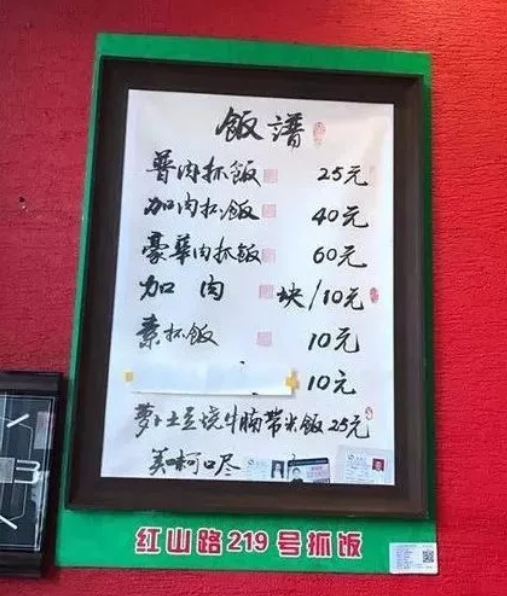 飯譜
普肉抓飯 25元
加肉抓飯 40元
豪華肉抓飯 60元
加肉 块/10元
素抓飯 10元
10元
萝卜土豆烧牛腩带米飯25元
红山路219号抓饭